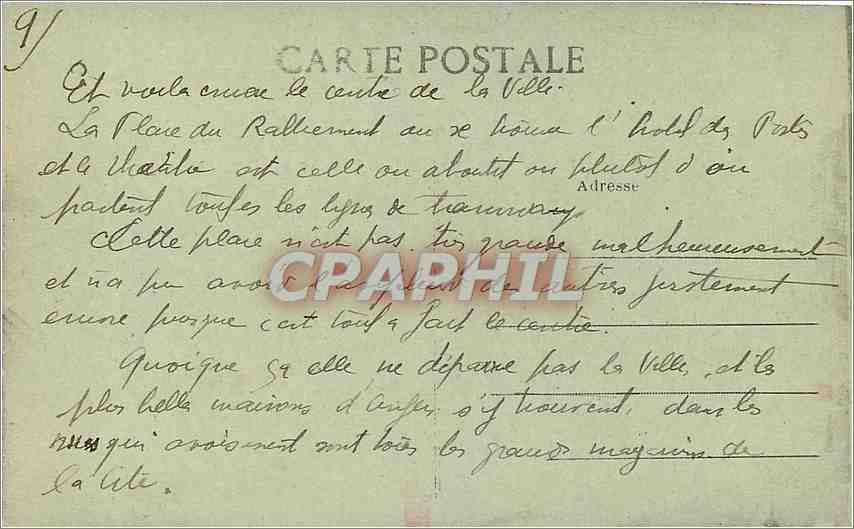 9)
CARTE POSTALE
Et voila encore le centre de la Ville.
La Place du Ralliement ou se trouve l'hotel des Postes
et le théâtre est celle ou aboutit ou plutôt d'où
Adresse
partent toutes les lignes de tramway
Cette place n'est pas très grande malheureusement
et n'a pu avoir l'ampleur des autres justement
CPAPHIL
encore puisque c'est tout à fait le centre.
Quoique ça elle ne dépare pas la Ville, et les
plus belles maisons d'Angers s'y trouvent, dans les
rues qui avoisinent sont tous les grands magasins de
la Cité.